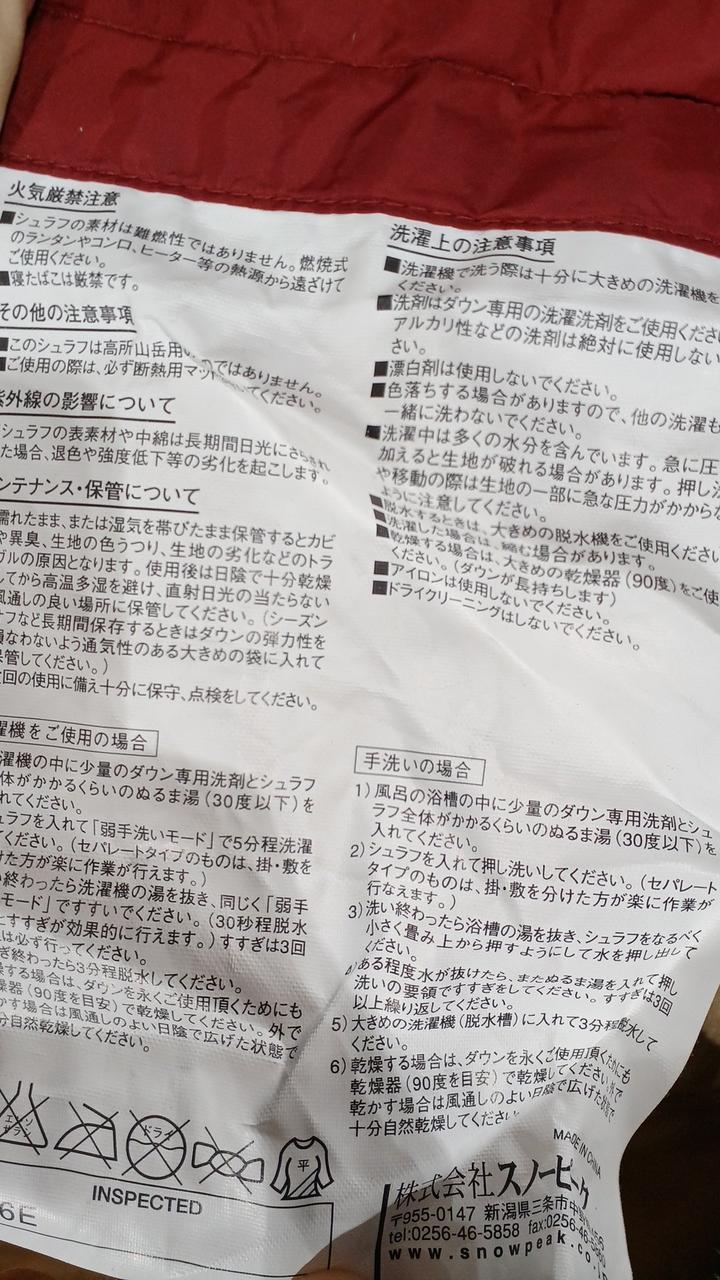 火気厳禁注意
■シュラフの素材は難燃性ではありません。燃焼式
のランタンやコンロ、ヒーター等の熱源から遠ざけて
ご使用ください。
■寝たばこは厳禁です。
その他の注意事項
■このシュラフは高所山岳用 のではありません。
■ご使用の際は、必ず断熱用マッ てください。
紫外線の影響について
シュラフの表素材や中綿は長期間日光にさらされ
た場合、退色や強度低下等の劣化を起こします。
ンテナンス・保管について
濡れたまま、または湿気を帯びたまま保管するとカビ
や異臭、生地の色うつり、生地の劣化などのトラ
ブルの原因となります。使用後は日陰で十分乾燥
してから高温多湿を避け、直射日光の当たらない
風通しの良い場所に保管してください。(シーズン
オフなど長期間保存するときはダウンの弾力性を
損なわないよう通気性のある大きめの袋に入れて
保管してください。)
次回の使用に備え十分に保守、点検をしてください。
洗濯上の注意事項
■洗濯機で洗う際は十分に大きめの洗濯機を
ください。
■洗剤はダウン専用の洗濯洗剤をご使用くださ
アルカリ性などの洗剤は絶対に使用しない
さい。
■漂白剤は使用しないでください。
■色落ちする場合がありますので、他の洗濯も
一緒に洗わないでください。
■洗濯中は多くの水分を含んでいます。急に圧
加えると生地が破れる場合があります。押し洗
や移動の際は生地の一部に急な圧力がかからな
ように注意してください。
■脱水するときは、大きめの脱水機をご使用くださ
■洗濯した場合は、縮む場合があります。
■乾燥する場合は、大きめの乾燥器(90度)をご使
ください。(ダウンが長持ちします)
■アイロンは使用しないでください。
■ドライクリーニングはしないでください。
濯機をご使用の場合
濯機の中に少量のダウン専用洗剤とシュラフ
体がかかるくらいのぬるま湯(30度以下)を
れてください。
ュラフを入れて「弱手洗いモード」で5分程洗濯
てください。(セパレートタイプのものは、掛・敷を
けた方が楽に作業が行えます。)
い終わったら洗濯機の湯を抜き、同じく「弱手
モード」ですすいでください。(30秒程脱水
とすすぎが効果的に行えます。)すすぎは3回
は必ず行ってください。
ぎ終わったら3分程脱水してください。
燥する場合は、ダウンを永くご使用頂くためにも
燥器(90度を目安)で乾燥してください。外で
かす場合は風通しのよい日陰で広げた状態で
分自然乾燥してください。
手洗いの場合
1)風呂の浴槽の中に少量のダウン専用洗剤とシュ
ラフ全体がかかるくらいのぬるま湯(30度以下)を
入れてください。
2)シュラフを入れて押し洗いしてください。(セパレート
タイプのものは、掛・敷を分けた方が楽に作業が
行なえます。)
3)洗い終わったら浴槽の湯を抜き、シュラフをなるべく
小さく畳み上から押すようにして水を押し出して
ください。
4)ある程度水が抜けたら、またぬるま湯を入れて押し
洗いの要領ですすぎをしてください。すすぎは3回
以上繰り返してください。
5)大きめの洗濯機(脱水槽)に入れて3分程脱水して
ください。
6)乾燥する場合は、ダウンを永くご使用頂くためにも
乾燥器(90度を目安)で乾燥してください。外で
乾かす場合は風通しのよい日陰で広げた状態で
十分自然乾燥してください
エンソ
サラシ
ドライ
平
INSPECTED
6E
MADE IN CHINA
株式会社スノーピーク
〒955-0147 新潟県三条市中野原456
tel:0256-46-5858 fax:0256-46-5860
www.snowpeak.co.